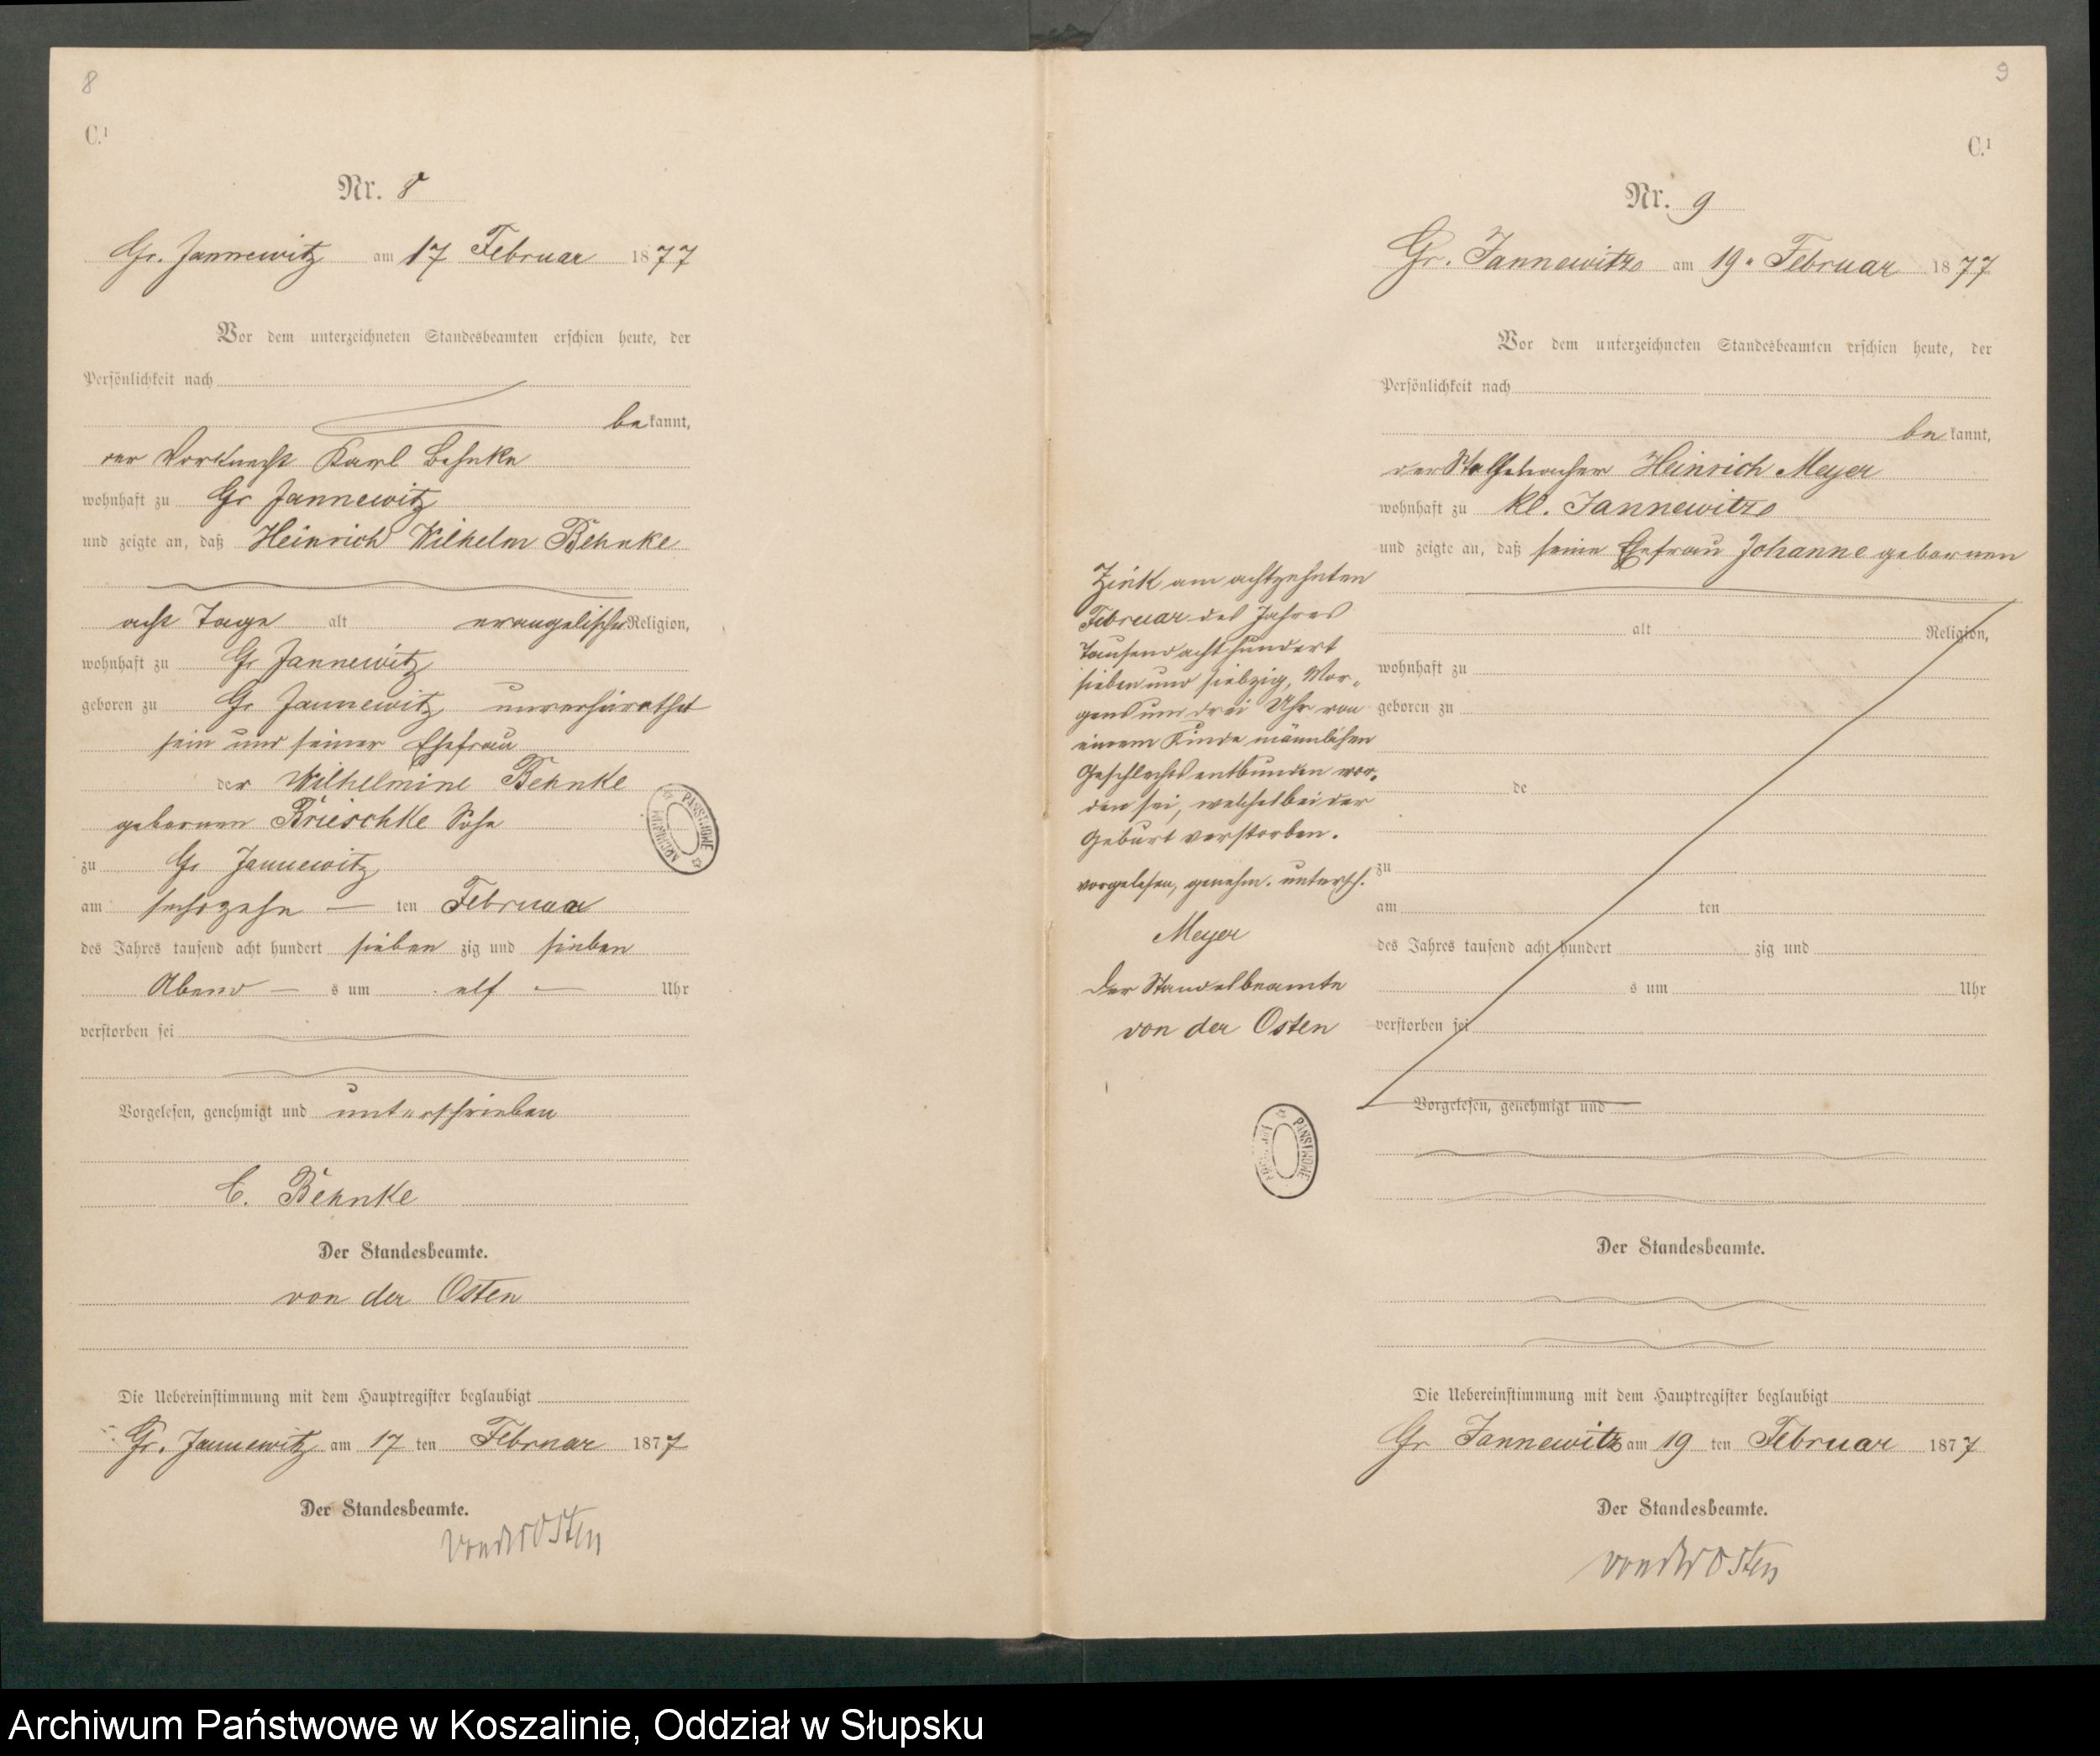 8
C.¹
Nr. 8
Gr. Jannewitz am 17 Februar 1877
Vor dem unterzeichneten Standesbeamten erschien heute, der
Persönlichkeit nach
bekannt,
der Vorknecht Karl Behnke
wohnhaft zu Gr Jannewitz
und zeigte an, daß Heinrich Wilhelm Behnke
acht Tage alt evangelischer Religion,
wohnhaft zu Gr Jannewitz
geboren zu Gr Jannewitz unverheirathet
sein und seiner Ehefrau
der Wilhelmine Behnke
gebornen Krieschke Sohn
zu Gr Jannewitz
am sechszehn ten Februar
des Jahres tausend acht hundert sieben zig und sieben
Abend s um elf Uhr
verstorben sei
Vorgelesen, genehmigt und unterschrieben
C. Behnke
Der Standesbeamte.
von der Osten
Die Uebereinstimmung mit dem Hauptregister beglaubigt
Gr. Jannewitz am 17 ten Februar 1877
Der Standesbeamte.
von der Osten
ARCHIWUM PAŃSTWOWE
9
C.¹
Nr. 9
Gr. Jannewitz am 19. Februar 1877
Vor dem unterzeichneten Standesbeamten erschien heute, der
Persönlichkeit nach
bekannt,
der Heinrich Meyer
wohnhaft zu Kl. Jannewitz
und zeigte an, daß seine Ehefrau Johanne gebornen
Zink am achtzehnten
Februar des Jahres
Tausend acht hundert
sieben und siebzig, Mor-
gens um drei Uhr von
einem Kinde männlichen
Geschlechts entbunden wor-
den sei, welches bei der
Geburt verstorben.
vorgelesen, genehm. untersch.
Meyer
Der Standesbeamte
von der Osten
alt Religion,
wohnhaft zu
geboren zu
de
zu
am ten
des Jahres tausend acht hundert zig und
s um Uhr
verstorben sei
Vorgelesen, genehmigt und
Der Standesbeamte.
Die Uebereinstimmung mit dem Hauptregister beglaubigt
Gr Jannewitz am 19 ten Februar 1877
Der Standesbeamte.
von der Osten
PAŃSTWOWE
Archiwum Państwowe w Koszalinie, Oddział w Słupsku